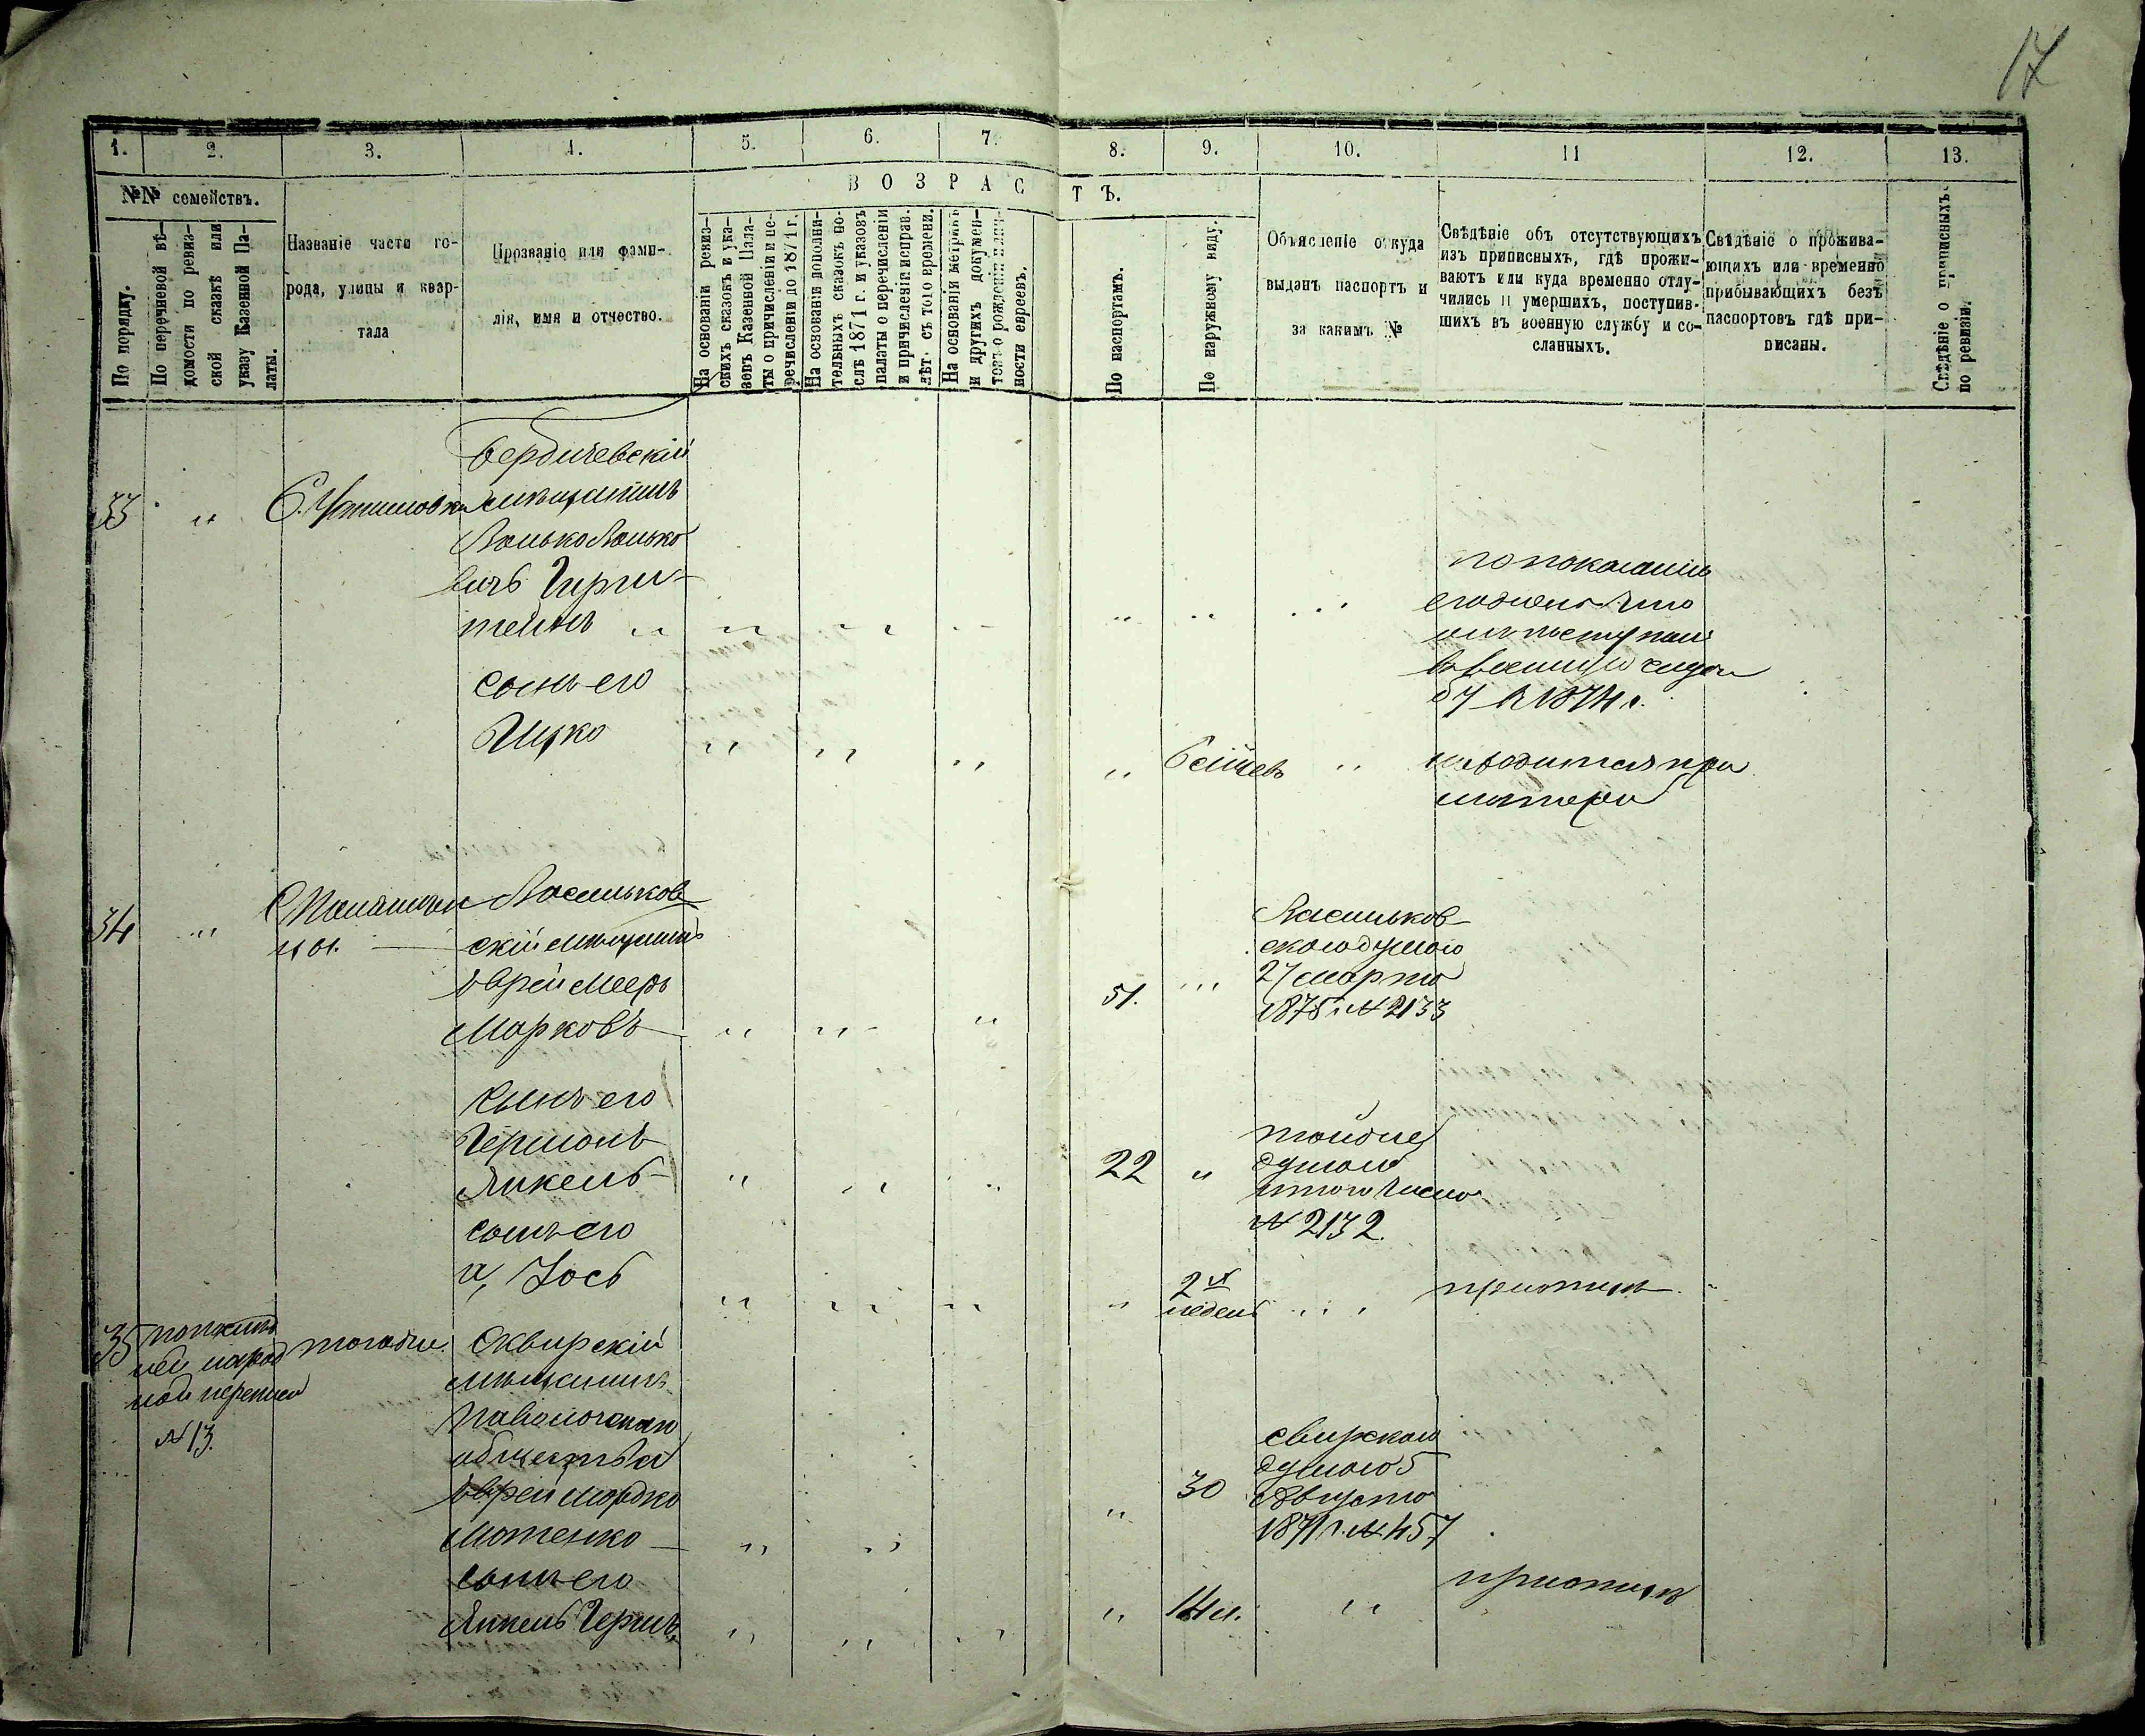 17
1.
2.
3.
4.
5.
6.
7.
8.
9.
10.
11
12.
13.
№№ семействъ.
ВОЗРАСТЪ.
По порядку.
По перечневой вѣ-
домости по ревиз-
ской сказкѣ или
указу Казенной Па-
латы.
Названіе части го-
рода, улицы и квар-
тала
Прозваніе или фами-
лія, имя и отчество.
На основаніи ревиз-
скихъ сказокъ и ука-
зовъ Казенной Пала-
ты о причисленіи и пе-
речисленіи до 1871 г.
На основаніи дополни-
тельныхъ сказокъ по-
слѣ 1871 г. и указовъ
палаты о перечисленіи
и причисленіи исправ.
лѣт. съ того времени.
На основаніи метрикъ
и другихъ докумен-
товъ о рожденіи
ности евреевъ.
По паспортамъ.
По наружному виду.
Объясненіе откуда
выданъ паспортъ и
за какимъ №
Свѣдѣніе объ отсутствующихъ
изъ приписныхъ, гдѣ прожи-
ваютъ или куда временно отлу-
чились и умершихъ, поступив-
шихъ въ военную службу и со-
сланныхъ.
Свѣдѣніе о прожива-
ющихъ или временно
прибывающихъ безъ
паспортовъ гдѣ при-
писаны.
Свѣдѣніе о приписныхъ
по ревизіи.
33 " С.
Бердичевскій
мѣщанинъ
Волько Волько
вичъ Герш-
тейнъ " " " "
" " "
по показанію
его жены что
онъ поступилъ
въ военную служ
бу въ 1874 г.
сынъ его
Ицко " " "
" 6 мѣсяцевъ " находится при
матери
34 " С.
Васильков
скій мѣщанинъ
еврей Мееръ
Марковъ " " "
51. "
Васильков-
скою думою
27 марта
1875 г. № 2133
сынъ его
Гершонъ
Янкель " " "
22 "
той же
думою
и того числа
№ 2132.
сынъ его
а, Іось " " "
" 2х
недель " "
35
народ
ной переписи
№ 13.
тоже
Сквирскій
мѣщанинъ
Паволочскаго
общества
еврей Мордко
Мотенко " "
" 30
Сквирскою
думою 5
августа
1871 г. № 457
сынъ его
Янкель Гершъ " " "
" 14 л. "